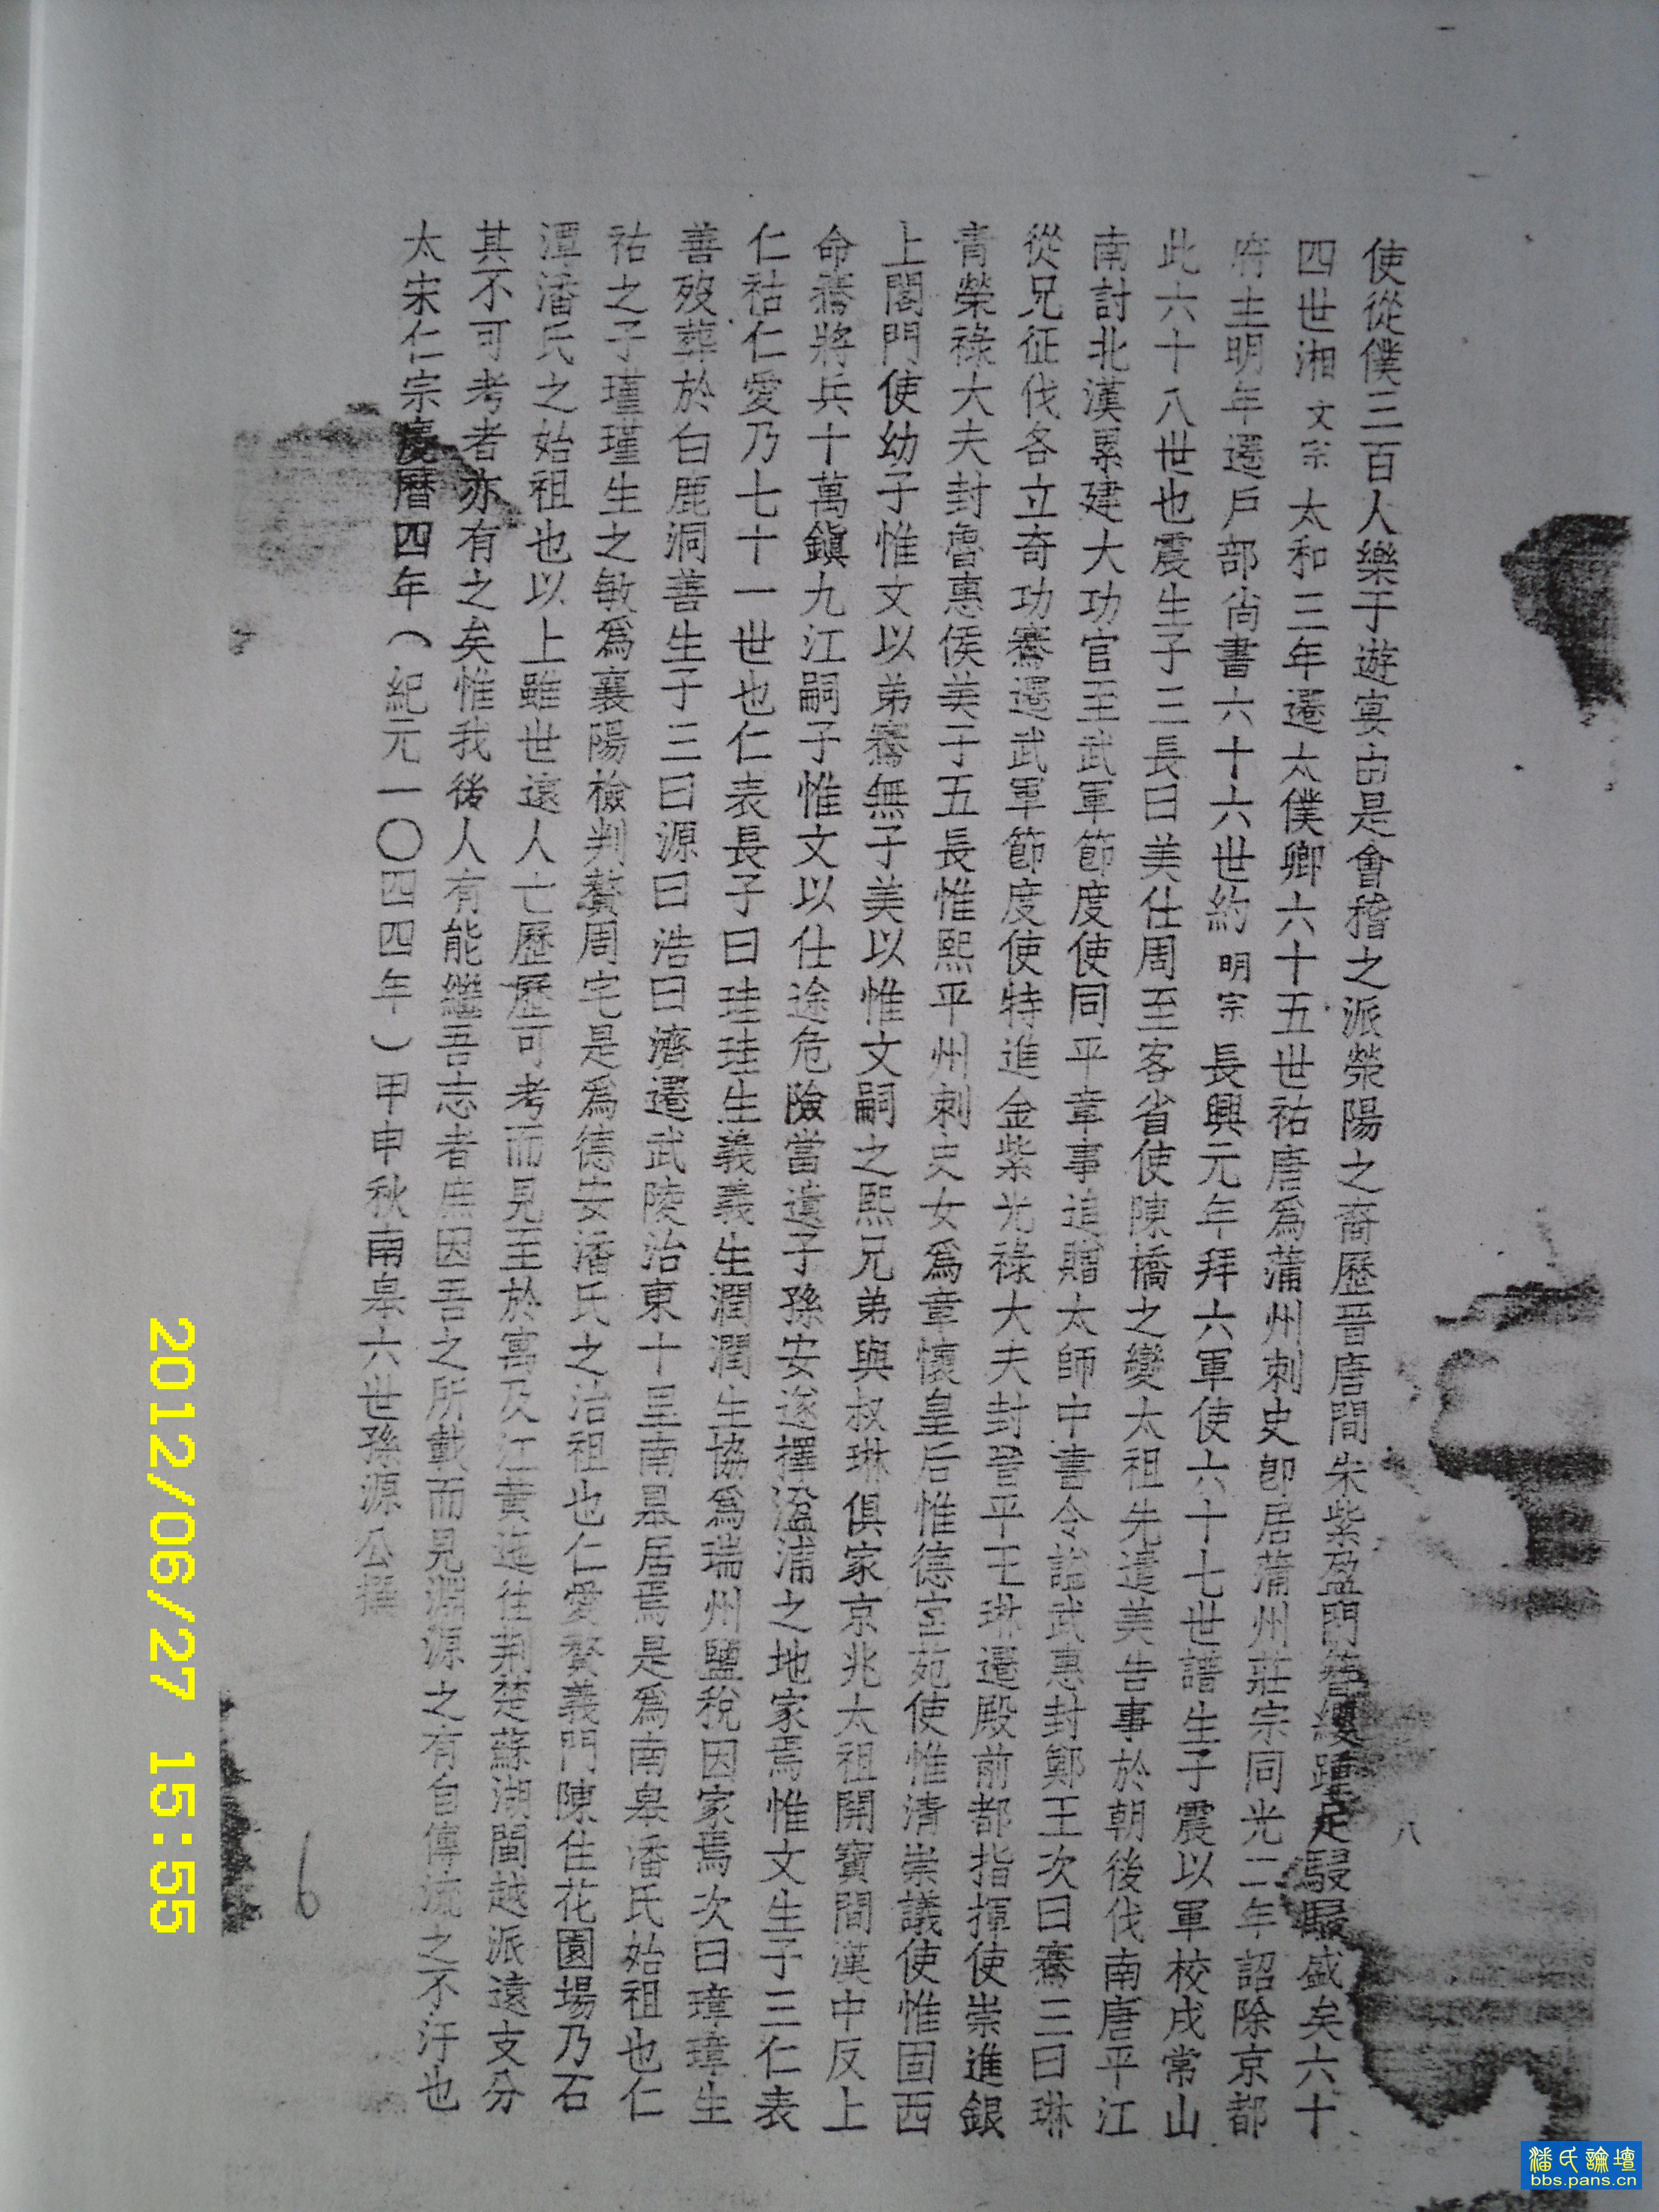 使從僕三百人樂于遊宴由是會稽之派榮陽之裔歷晉唐間朱紫盈門簪纓踵足駸駸盛矣六十
四世湘文宗太和三年遷太僕卿六十五世祐唐為蒲州刺史卽居蒲州莊宗同光二年詔除京都
府主明年遷戶部尚書六十六世約明宗長興元年拜六軍使六十七世譜生子震以軍校戍常山
此六十八世也震生子三長曰美仕周至客省使陳橋之變太祖先遣美告事於朝後伐南唐平江
南討北漢累建大功官至武軍節度使同平章事追贈太師中書令諡武惠封鄭王次曰騫三曰琳
從兄征伐各立奇功騫遷武軍節度使特進金紫光祿大夫封晉平王琳遷殿前都指揮使崇進銀
青榮祿大夫封魯惠侯美子五長惟熙平州刺史女為章懷皇后惟德宮苑使惟清崇議使惟固西
上閣門使幼子惟文以弟騫無子美以惟文嗣之熙兄弟與叔琳俱家京兆太祖開寶間漢中反上
命騫將兵十萬鎮九江嗣子惟文以仕途危險當遺子孫安遂擇湓浦之地家焉惟文生子三仁表
仁祜仁愛乃七十一世也仁表長子曰珪珪生義義生潤潤生協為瑞州鹽稅因家焉次曰璋璋生
善歿葬於白鹿洞善生子三曰源曰浩曰濟遷武陵治東十里南皋居焉是為南皋潘氏始祖也仁
祜之子瑾瑾生之敏為襄陽檢判贅周宅是為德安潘氏之治祖也仁愛贅義門陳住花園場乃石
潭潘氏之始祖也以上雖世遠人亡歷歷可考而見至於寓及江黃迤住荆楚蘇湖閩越派遠支分
其不可考者亦有之矣惟我後人有能繼吾志者庶因吾之所載而見淵源之有自傳流之不汙也
太宋仁宗慶曆四年（紀元一〇四四年）甲申秋南皋六世孫源公撰
八
6
2012/06/27 15:55
潘氏論壇
bbs.pans.cn